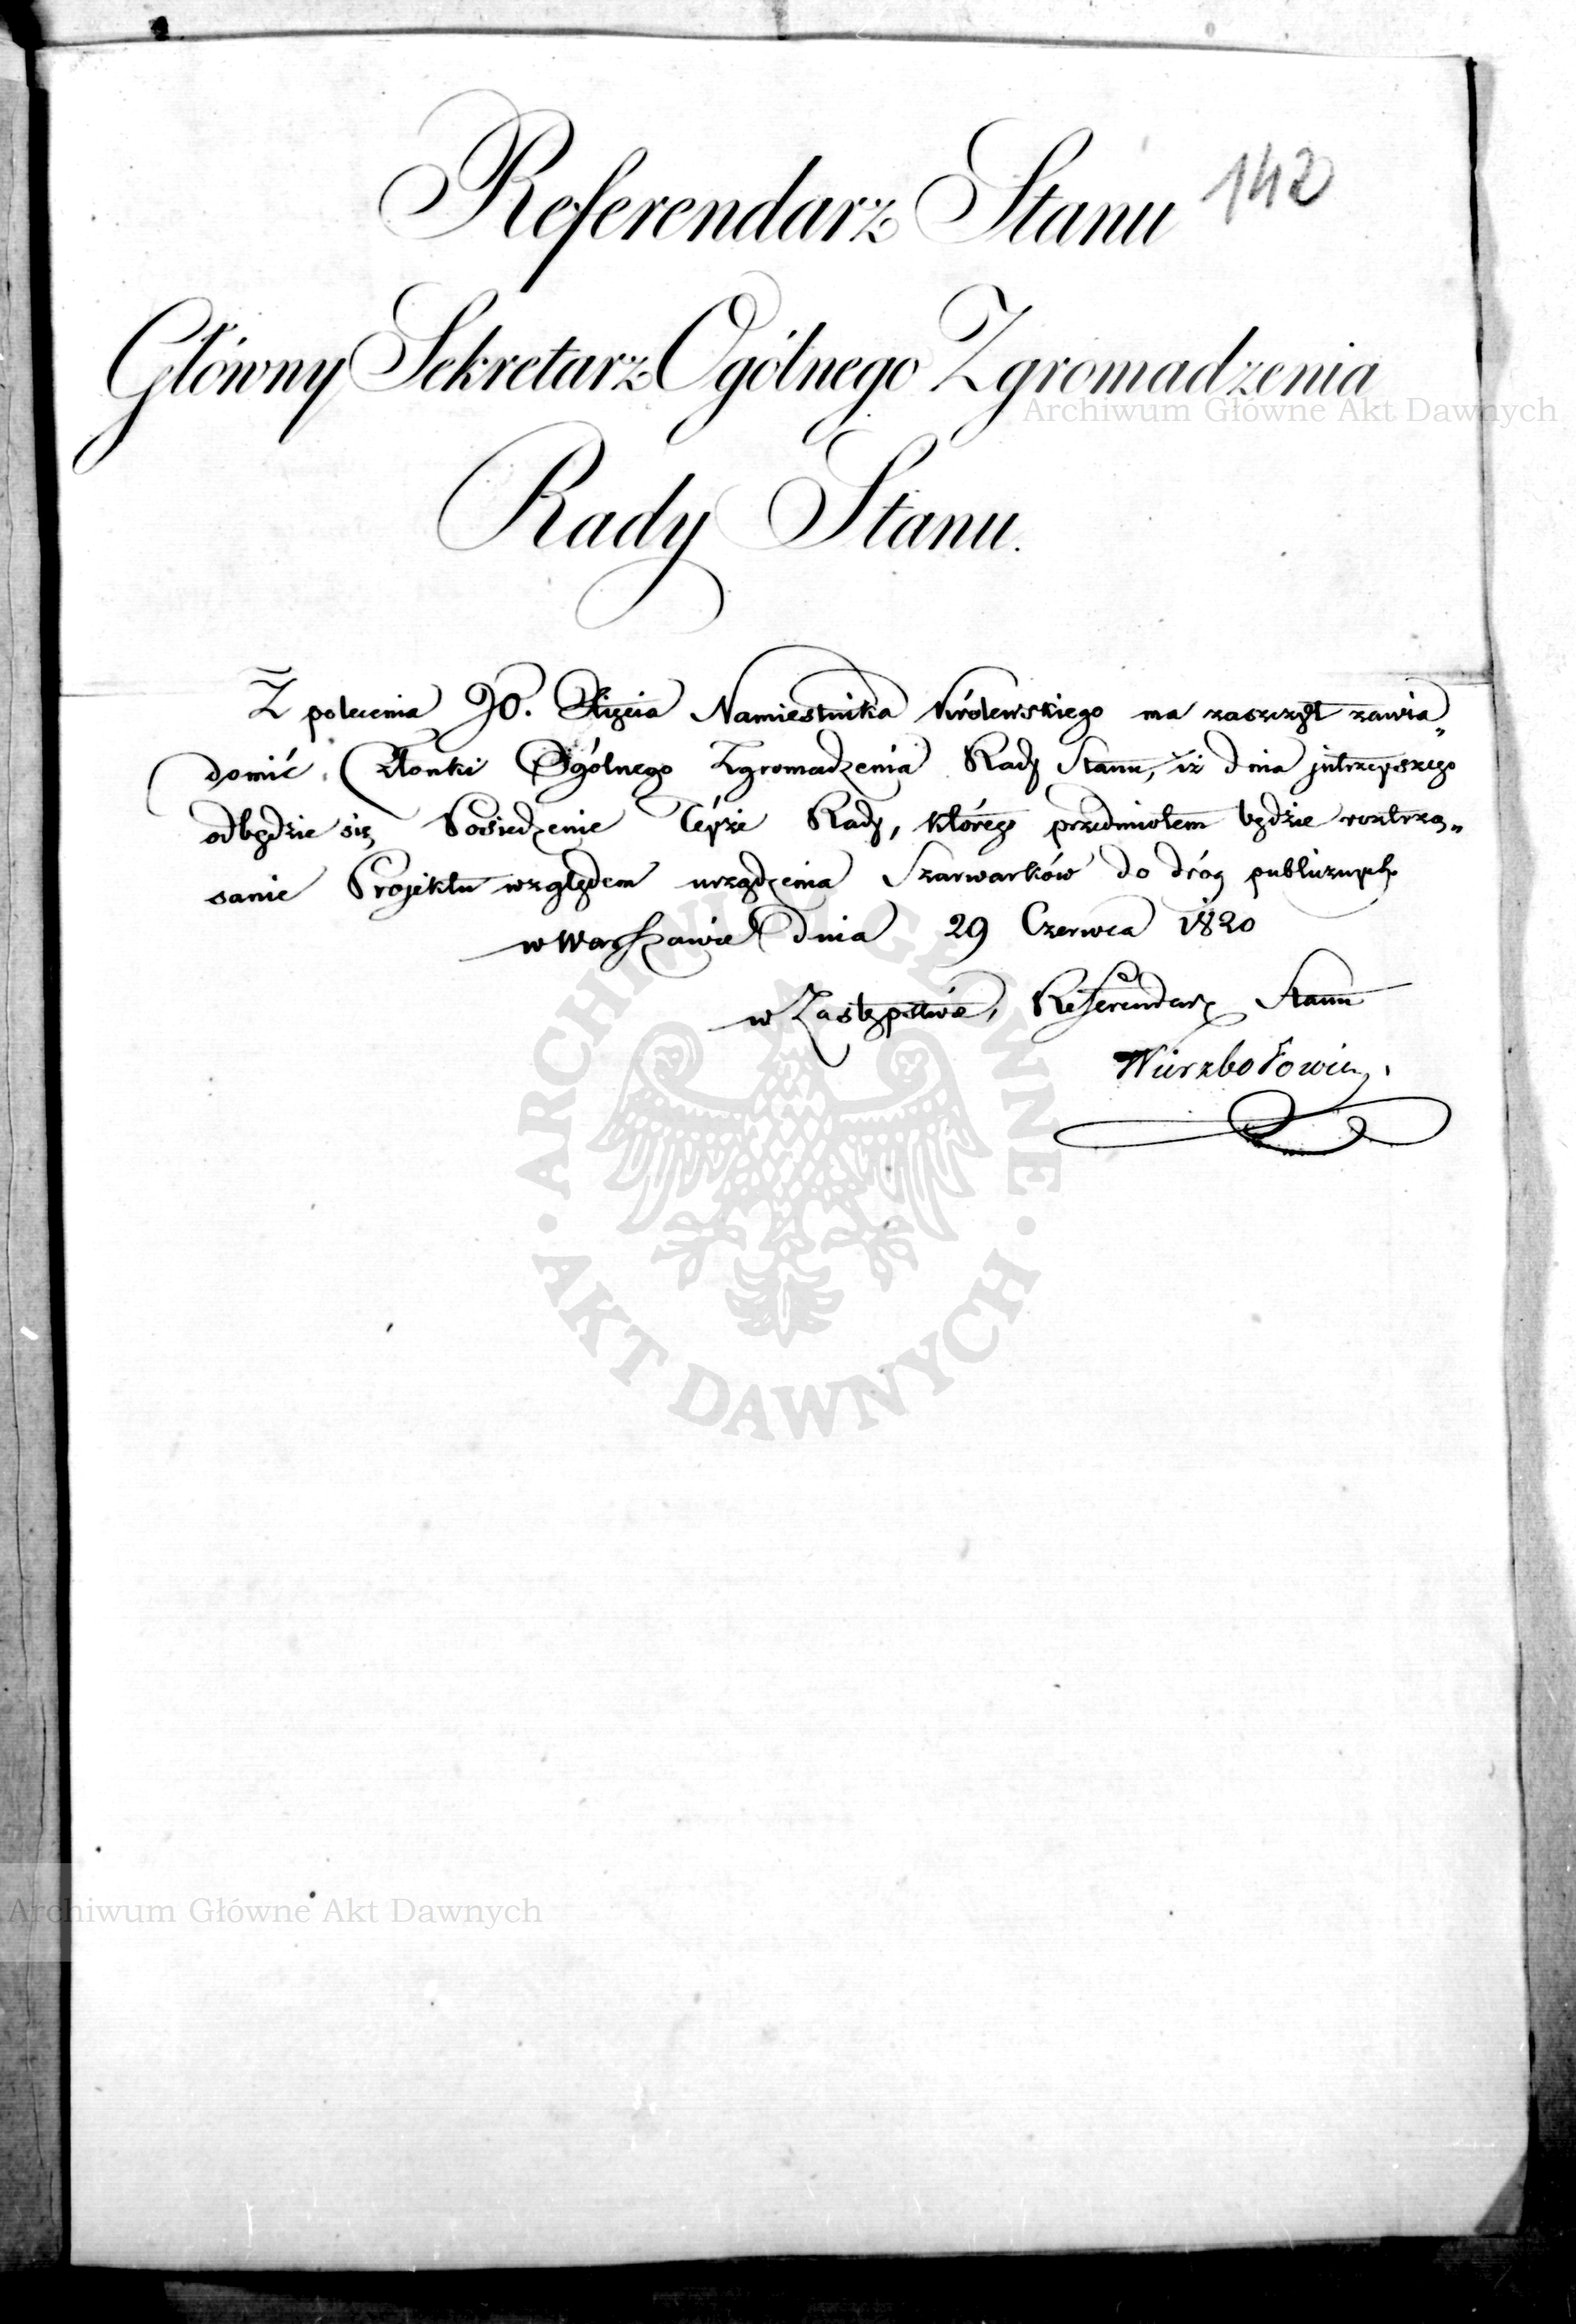 142
Referendarz Stanu
Główny Sekretarz Ogólnego Zgromadzenia
Archiwum Główne Akt Dawnych
Rady Stanu.
Z polecenia JO. Xięcia Namiestnika Królewskiego ma zaszczyt zawia„
domić Członki Ogólnego Zgromadzenia Rady Stanu, iż dnia jutrzeyszego
odbędzie się Posiedzenie Teyże Rady, którego przedmiotem będzie roztrzą„
sanie Projektu względem urządzenia Szarwarków do dróg publicznych
w Warszawie dnia 29 Czerwca 1820
w Zastępstwie, Referendarz Stanu
Wierzbołowicz
ARCHIWUM GŁÓWNE
· AKT DAWNYCH ·
Archiwum Główne Akt Dawnych